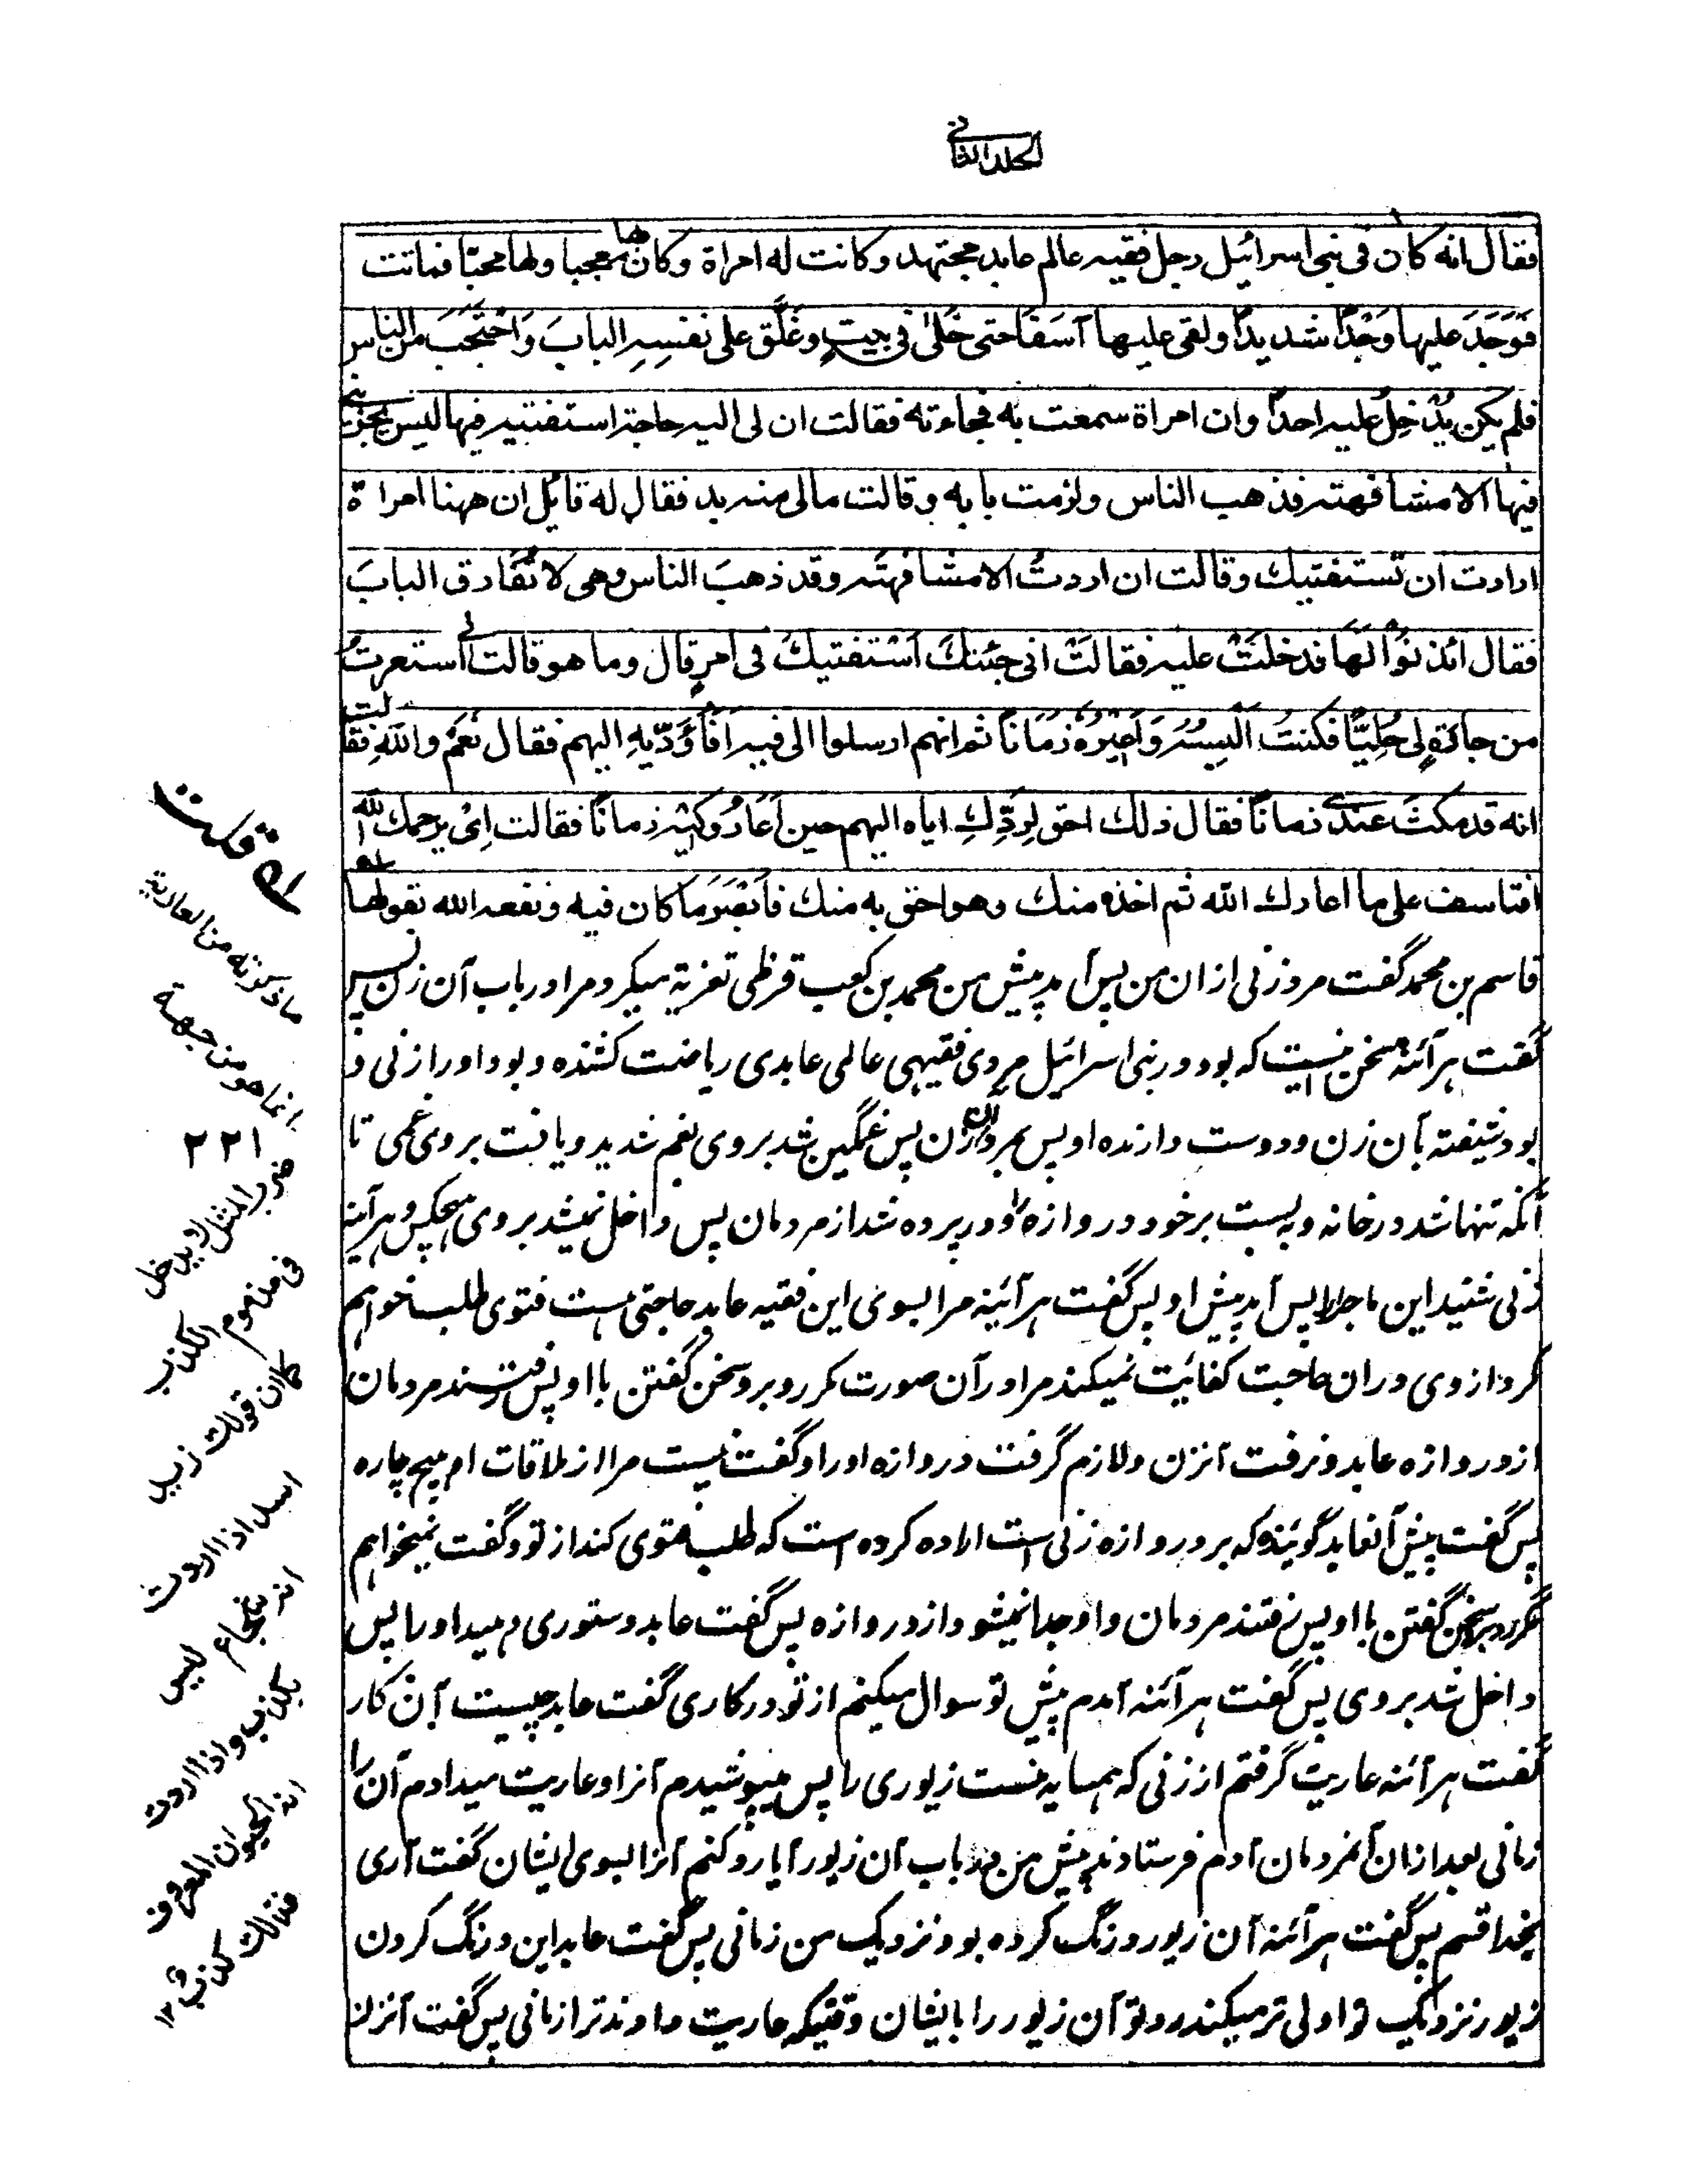 الجلد الثانی
فقال انه كان فی بنی اسرائیل رجل فقیه عالم عابد مجتهد وكانت له امراة وكان بها معجبا ولها محبّا فماتت
فَوَجَدَ علیها وَجْدًا شدیدًا ولقی علیها آسَفًا حتی خَلیٰ فی بیتٍ وغَلَّق علی نفسِهِ البابَ وَاحْتَجَبَ من الناس
فلم یكن یَدْخِلُ علیه احدًا وان امراة سمعت به فجاءته فقالت ان لی الیه حاجة استفتیه فیها لیس یجزینی
فیها الا مشافهته فذهب الناس ولزمت بابه وقالت مالی منه بد فقال له قایل ان ههنا امراة
ارادت ان تستفتیك وقالت ان اردتُ الا مشافهتَه وقد ذهبَ الناس وهی لا تُفَارق البابَ
فقال ائذنُوْا لَهَا فدخلَتْ علیه فقالَتْ انی جئتك اَسْتفتیكَ فی امرٍ قال وما هو قالت انی استعرتُ
من جارَةٍ لی حُلِیًّا فكنتُ اَلْبِسُهُ وَاُعِیْرُهُ زمَانًا ثم انهم ارسلوا الی فیه اَفَاُؤَدِّیهِ الیهم فقال نَعَمْ واللهِ فقالت
انه قد مكثَ عندی زمانًا فقال ذلك احق لِردِّكِ ایاه الیهم حین اَعَارُوكیْهِ زمانًا فقالت اِیْ یرحمك الله
افتاسف علی ما اعارك الله ثم اخذه منك وهو احق به منك فاَبْصَرَ ما كان فیه ونفعه الله بقولها
قاسم بن محمد گفت مرد زنی از ان من پس آمد پیش من محمد بن كعب قرظی تعزیة میكرد مرا در باب آن زن پس
گفت هر آئنه سخن اینست كه بود در بنی اسرائیل مردی فقیهی عالمی عابدی ریاضت كشنده و بود او را زنی و
بود شیفته بآن زن و دوست دارنده او پس بمرد آن زن پس غمگین شد بر وی بغم شدید و یافت بر وی غمی تا
آنكه تنها شد در خانه و به بست بر خود دروازه را و در پرده شد از مردمان پس داخل نمیشد بر وی هیچكس و هر آینه
زنی شنید این ماجرا پس آمد پیش او پس گفت هر آئینه مرا بسوی این فقیه عابد حاجتی هست فتوی طلب خواهم
كرد از وی در ان حاجت كفایت نمیكند مرا در آن صورت مگر روبرو سخن گفتن با او پس رفتند مردمان
از دروازه عابد و نرفت آنزن و لازم گرفت دروازه او را و گفت نیست مرا از ملاقات ام هیچ چاره
پس گفت پیش آنعابد گوینده كه بر دروازه زنی است اراده كرده است كه طلب فتوی كند از تو و گفت نمیخواهم
مگر روبرو سخن گفتن با او پس رفتند مردمان و او جدا نمیشود از دروازه پس گفت عابد دستوری دهید او را پس
داخل شد بر وی پس گفت هر آئنه آمدم پیش تو سوال میكنم از تو در كاری گفت عابد چیست آن كار
گفت هر آئنه عاریت گرفتم از زنی كه همسایه منست زیوری را پس میپوشیدم آنرا و عاریت میدادم آن را
زمانی بعد ازان آنمردمان آدم فرستادند پیش من در باب آن زیور آیا رد كنم آنرا بسوی ایشان گفت آری
بخدا قسم پس گفت هر آئنه آن زیور درنگ كرده بود نزدیك من زمانی پس گفت عابد این درنگ كردن
زیور نزدیك تو اولی تر میكند رد تو آن زیور را بایشان وقتیكه عاریت دادند ترا زمانی پس گفت آنزن
ام قلت
ما ذكرته من العاریة
انما هو من جهة
٢٢١
ضرب المثل لا یدخل
فی مذموم الكذب
كان قولك زید
اسد اذا اردت
انه شجاع لیس
بكذب واذا اردت
انه الحیوان المعروف
فذلك كذب ١٢